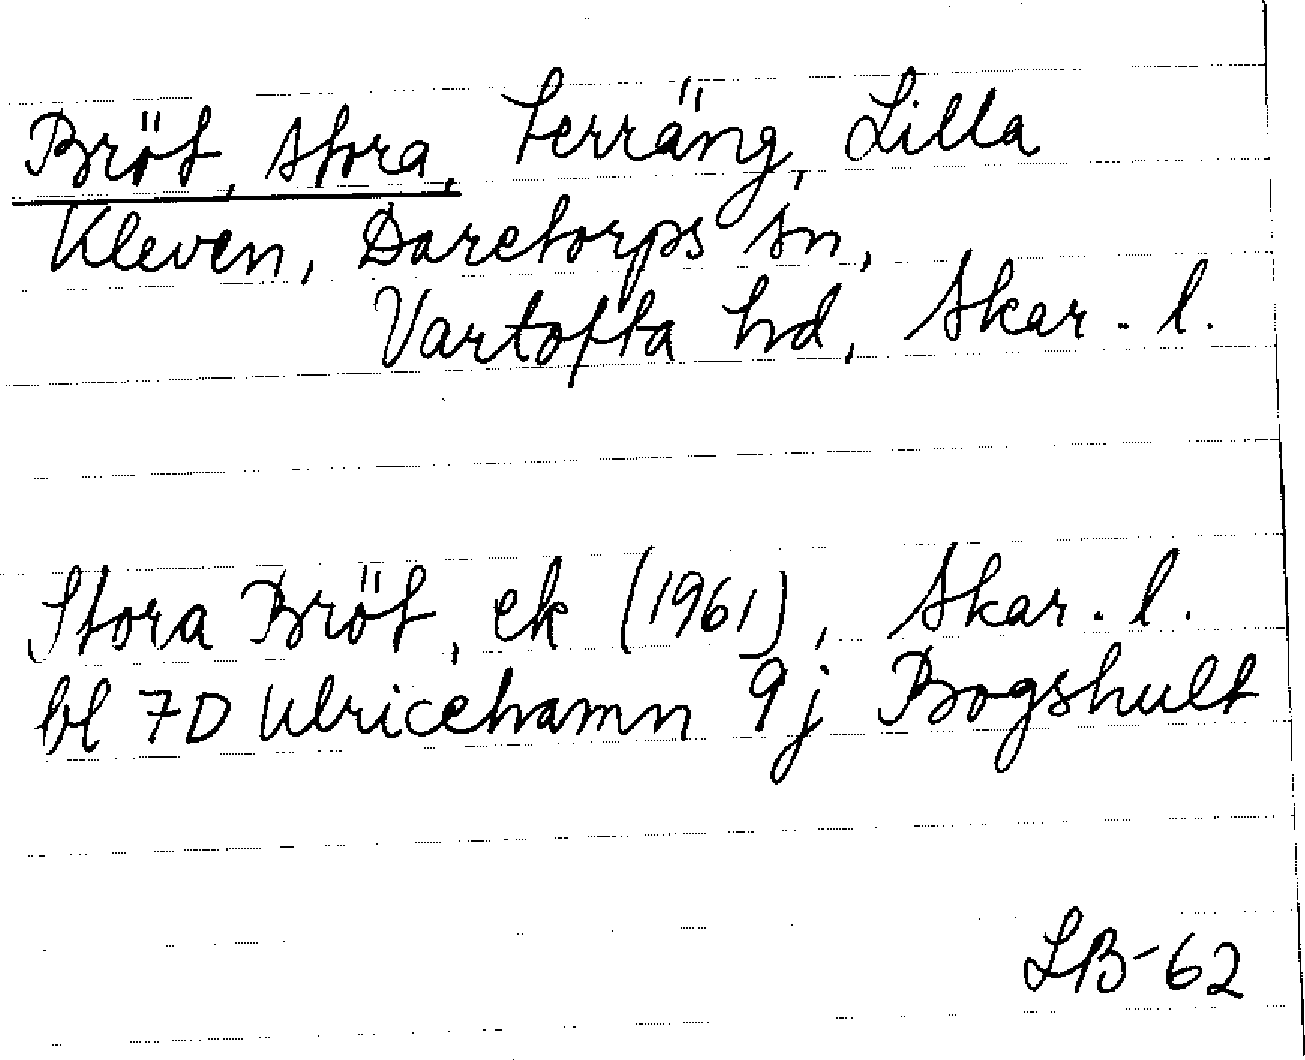 Bröt, Stora, Terräng, Lilla
Kleven, Daretorps sn,
Vartofta hd, Skar. l.
Stora Bröt, ek (1961), Skar. l.
bl 7D Ulricehamn 9j Bogshult
LB-62